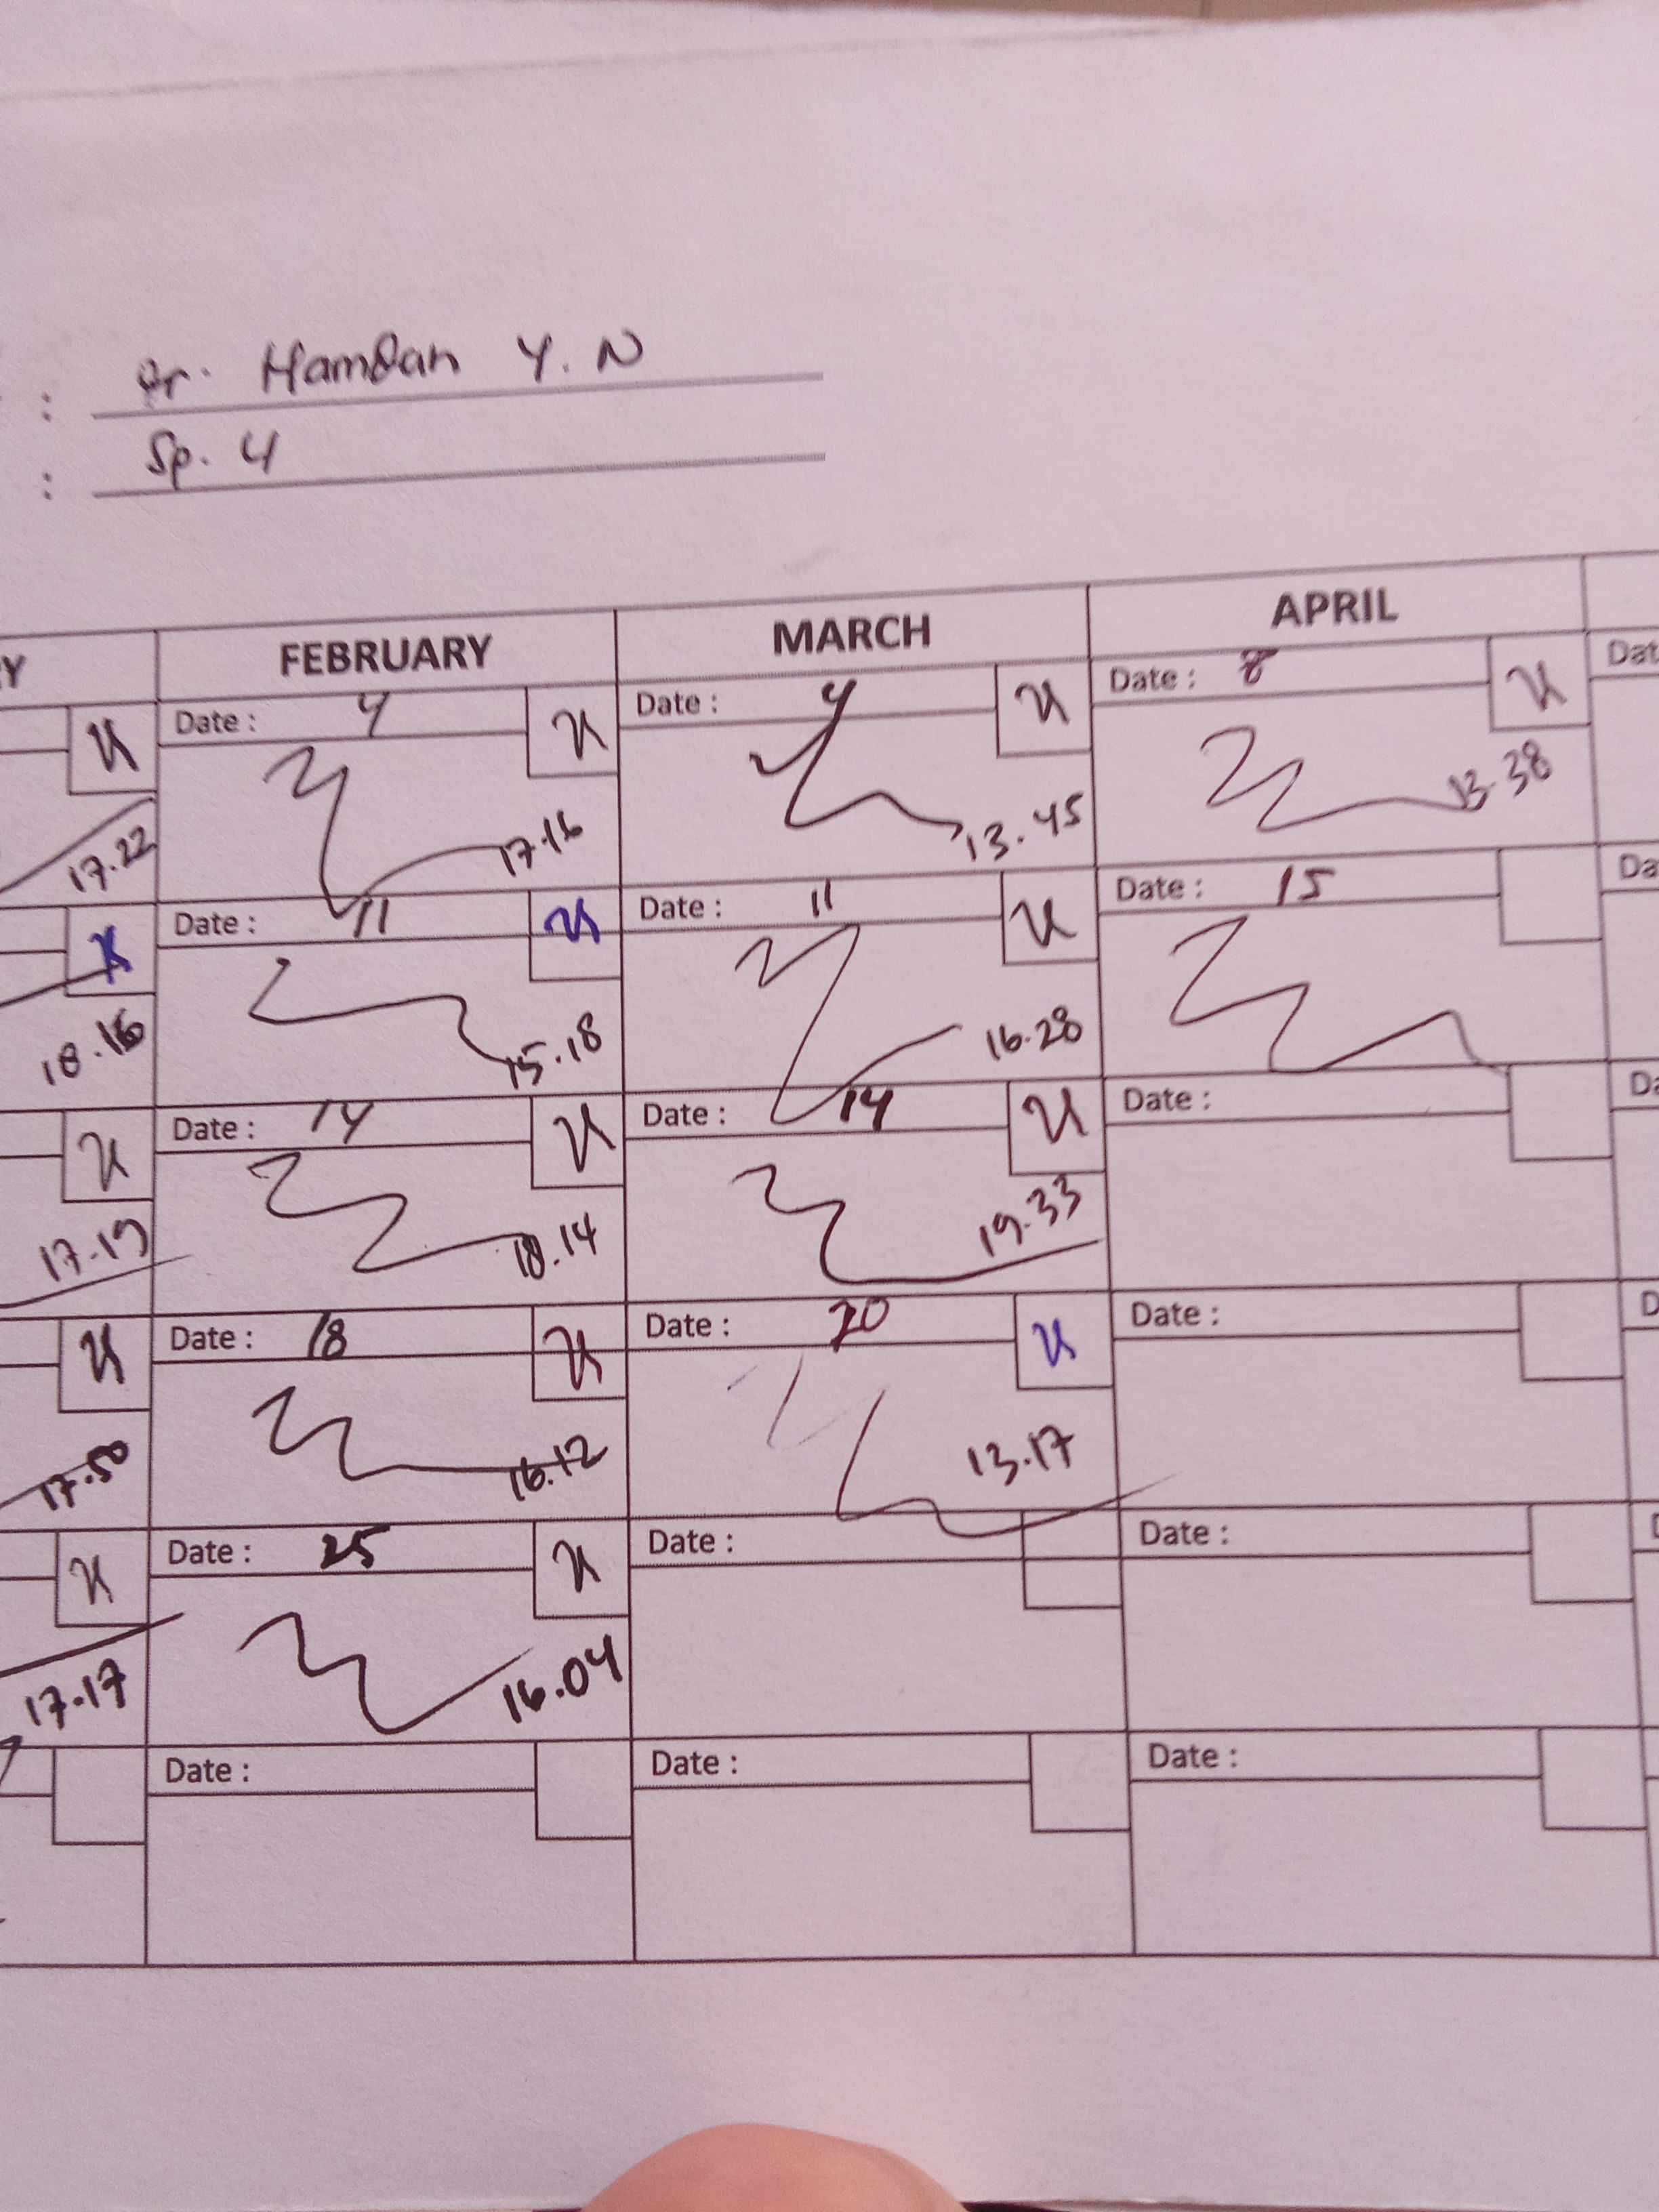 : Dr. Hamdan Y. N
: Sp. U
Y FEBRUARY MARCH APRIL
Date : 4 Date : 4 Date : 8 Dat
17.22 17.16 13.45 13.38
Date : 11 Date : 11 Date : 15 Da
18.16 15.18 16.28
Date : 14 Date : 14 Date : Da
17.19 18.14 19.33
Date : 18 Date : 20 Date : D
17.50 16.12 13.17
Date : 25 Date : Date : D
17.17 16.04
Date : Date : Date :